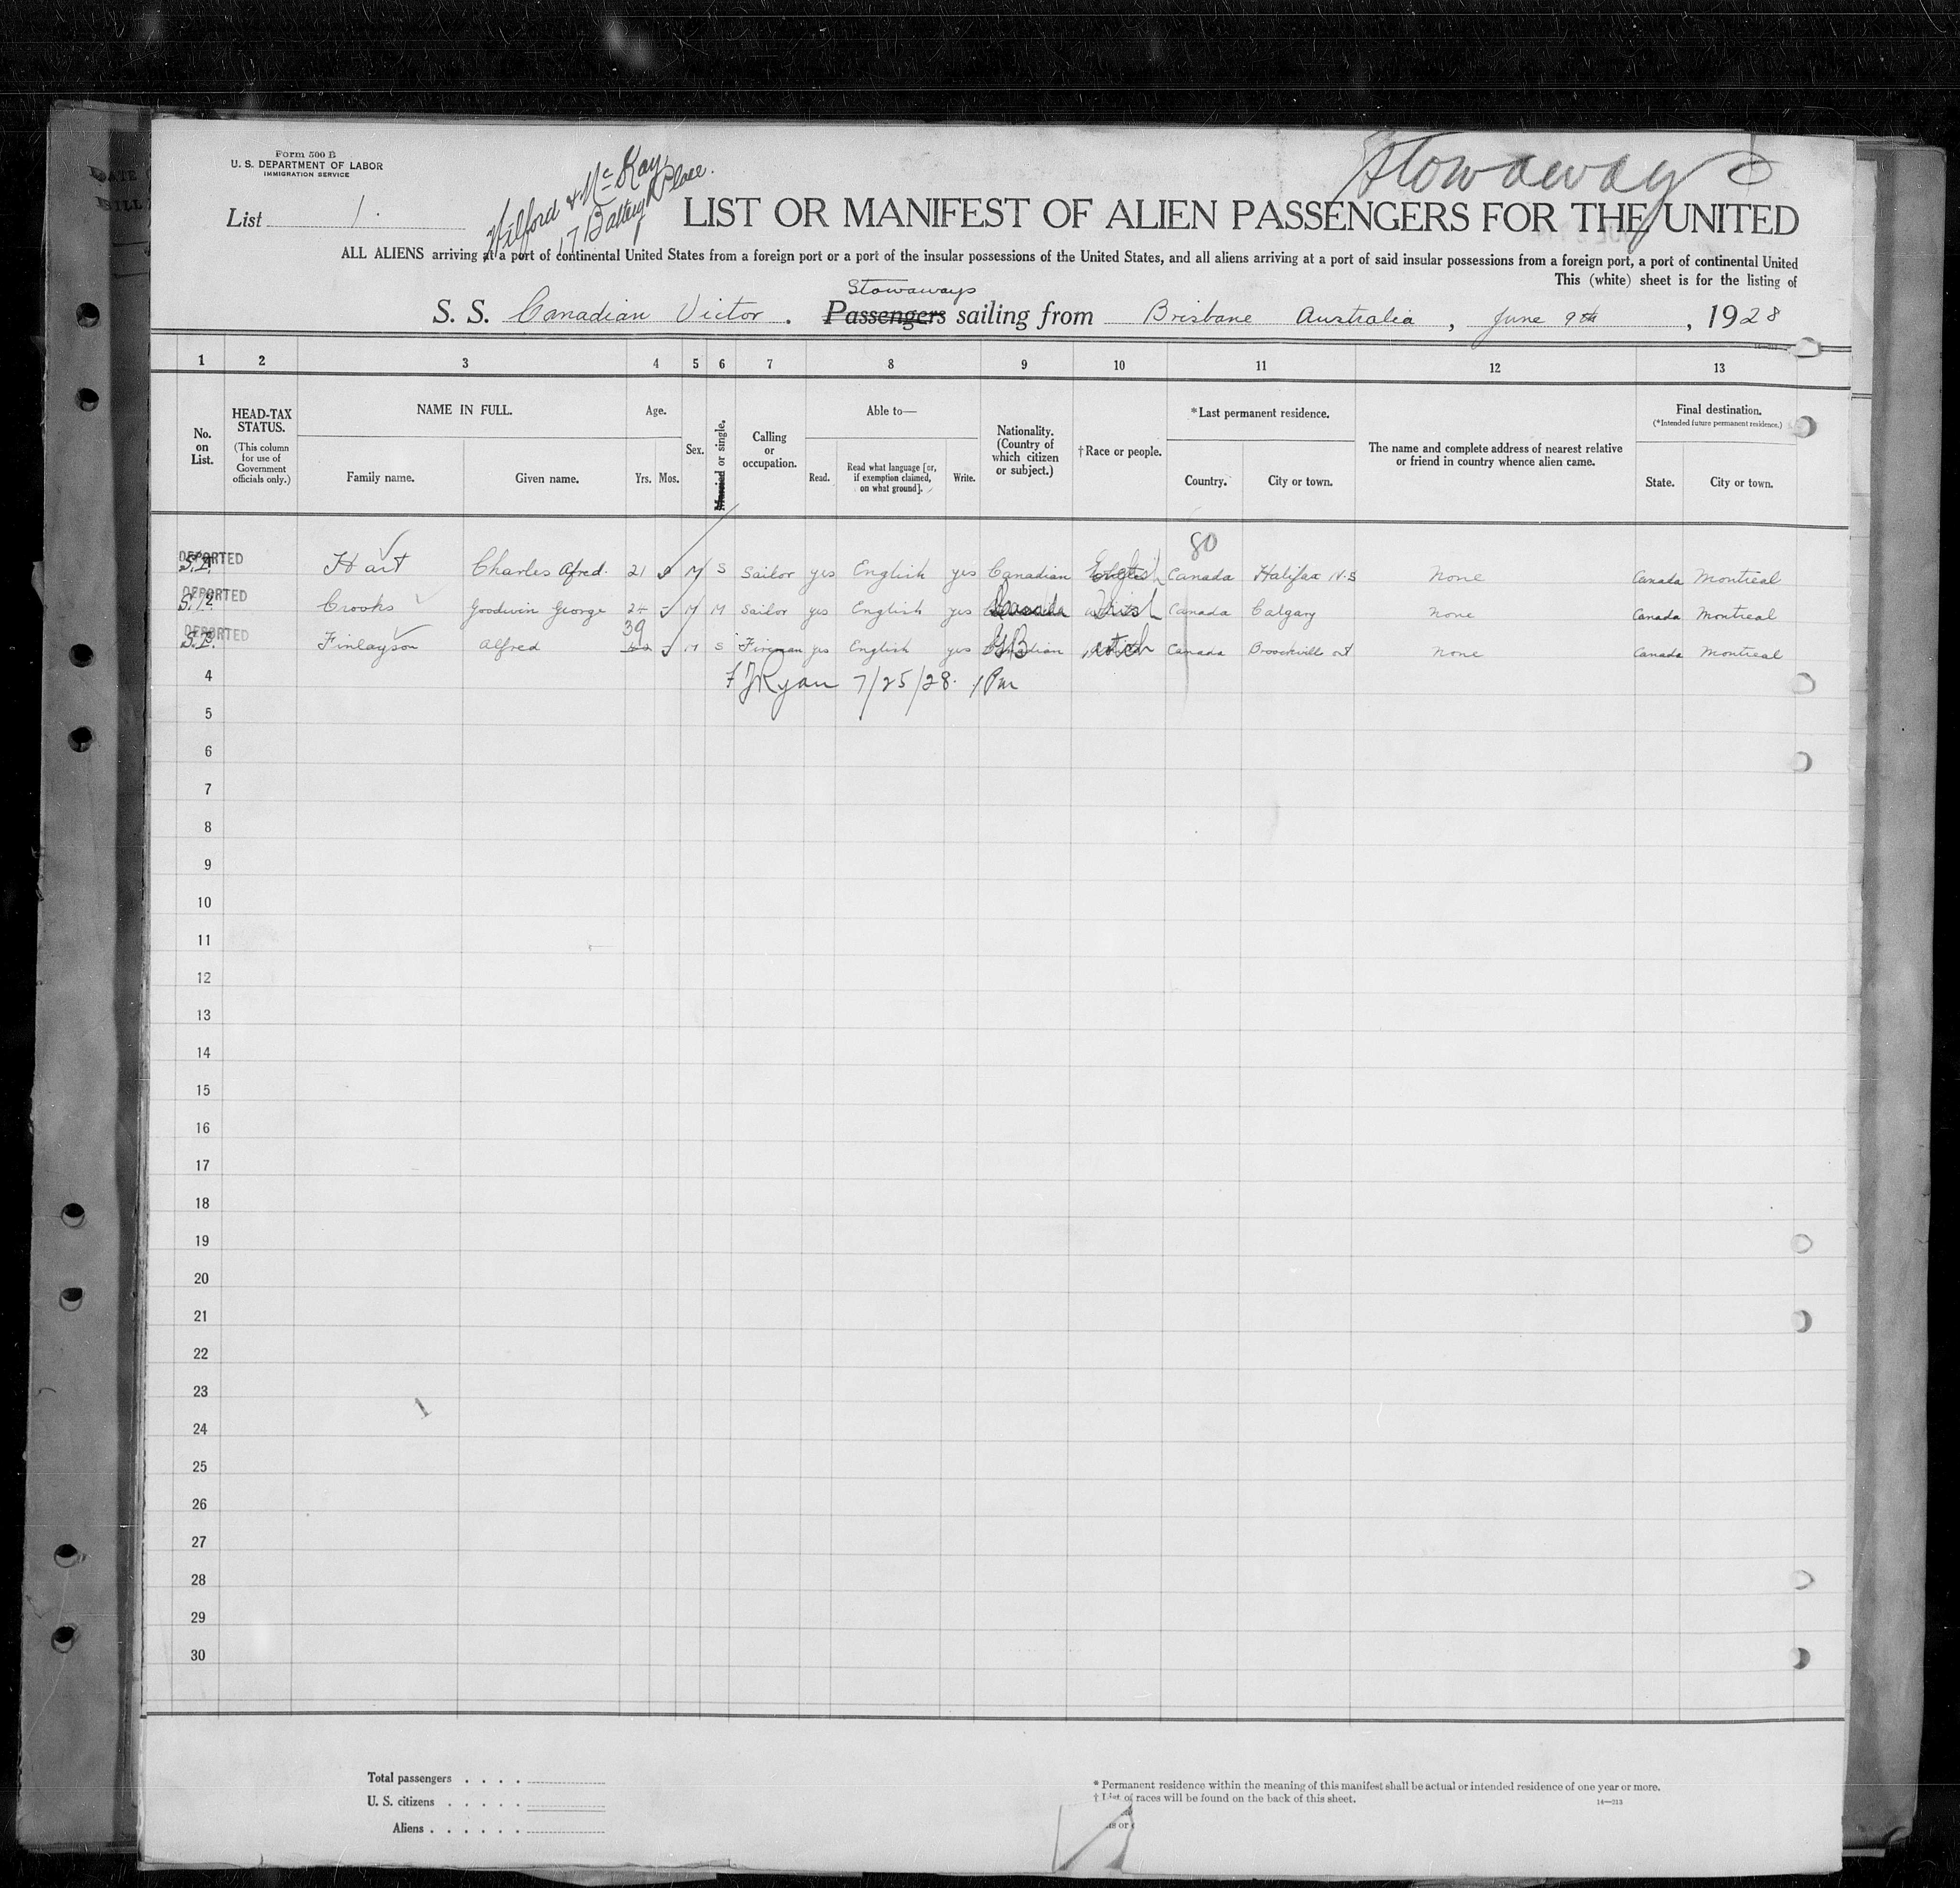 Stowaways
Form 500 B
U. S. DEPARTMENT OF LABOR
IMMIGRATION SERVICE
List 1.
& McKay
17 Battery Place.
LIST OR MANIFEST OF ALIEN PASSENGERS FOR THE UNITED
ALL ALIENS arriving at a port of continental United States from a foreign port or a port of the insular possessions of the United States, and all aliens arriving at a port of said insular possessions from a foreign port, a port of continental United
This (white) sheet is for the listing of
Stowaways
S. S. Canadian Victor. Passengers sailing from Brisbane Australia, June 9th, 1928
1 2 3 4 5 6 7 8 9 10 11 12 13
No. on List.
HEAD-TAX STATUS.
(This column for use of Government officials only.)
NAME IN FULL.
Family name. Given name.
Age.
Yrs. Mos.
Sex.
Married or single.
Calling or occupation.
Able to—
Read. Read what language [or, if exemption claimed, on what ground]. Write.
Nationality. (Country of which citizen or subject.)
†Race or people.
*Last permanent residence.
Country. City or town.
The name and complete address of nearest relative or friend in country whence alien came.
Final destination.
(*Intended future permanent residence.)
State. City or town.
80
DEPORTED
S.I. 1 Hart Charles Afred. 21 M S Sailor yes English yes Canadian English Canada Halifax N.S None Canada Montreal
DEPORTED
S.I. 2 Crooks Goodwin George 24 M M Sailor yes English yes Canada Irish Canada Calgary None Canada Montreal
39
DEPORTED
S.I. Finlayson Alfred M S Fireman yes English yes GB Canada Brockville ont None Canada Montreal
4 F J Ryan 7/25/28. 1 Pm
5
6
7
8
9
10
11
12
13
14
15
16
17
18
19
20
21
22
23
24
25
26
27
28
29
30
Total passengers . . . .
U. S. citizens . . . . .
Aliens . . . . . .
* Permanent residence within the meaning of this manifest shall be actual or intended residence of one year or more.
† List of races will be found on the back of this sheet.
14—213